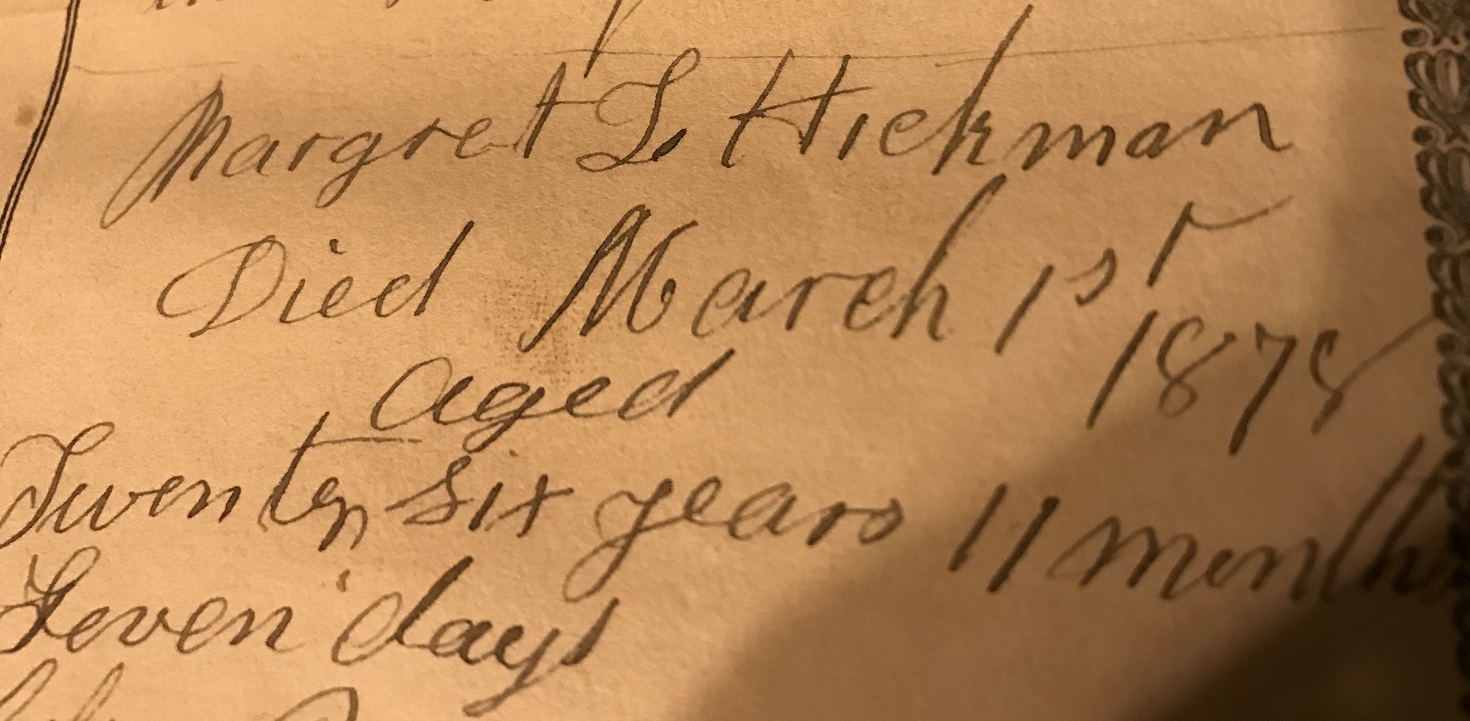 Margret L. Hickman
Died March 1st
1878
aged
Twenty six years 11 months
Seven days